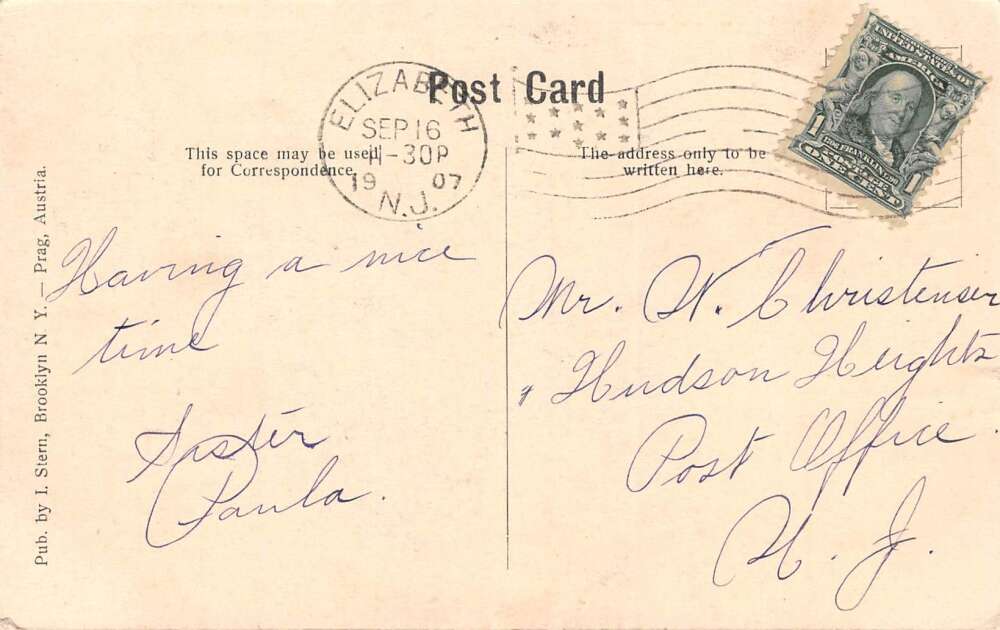 Post Card
This space may be used
for Correspondence.
The address only to be
written here.
ELIZABETH
SEP 16
11-30P
1907
N.J.
UNITED STATES OF
AMERICA
FRANKLIN
1 1
ONE CENT
Pub. by I. Stern, Brooklyn N Y. — Prag, Austria.
Having a nice
time
Sister
Paula.
Mr. W. Christensen
Hudson Heights
Post Office.
N. J.